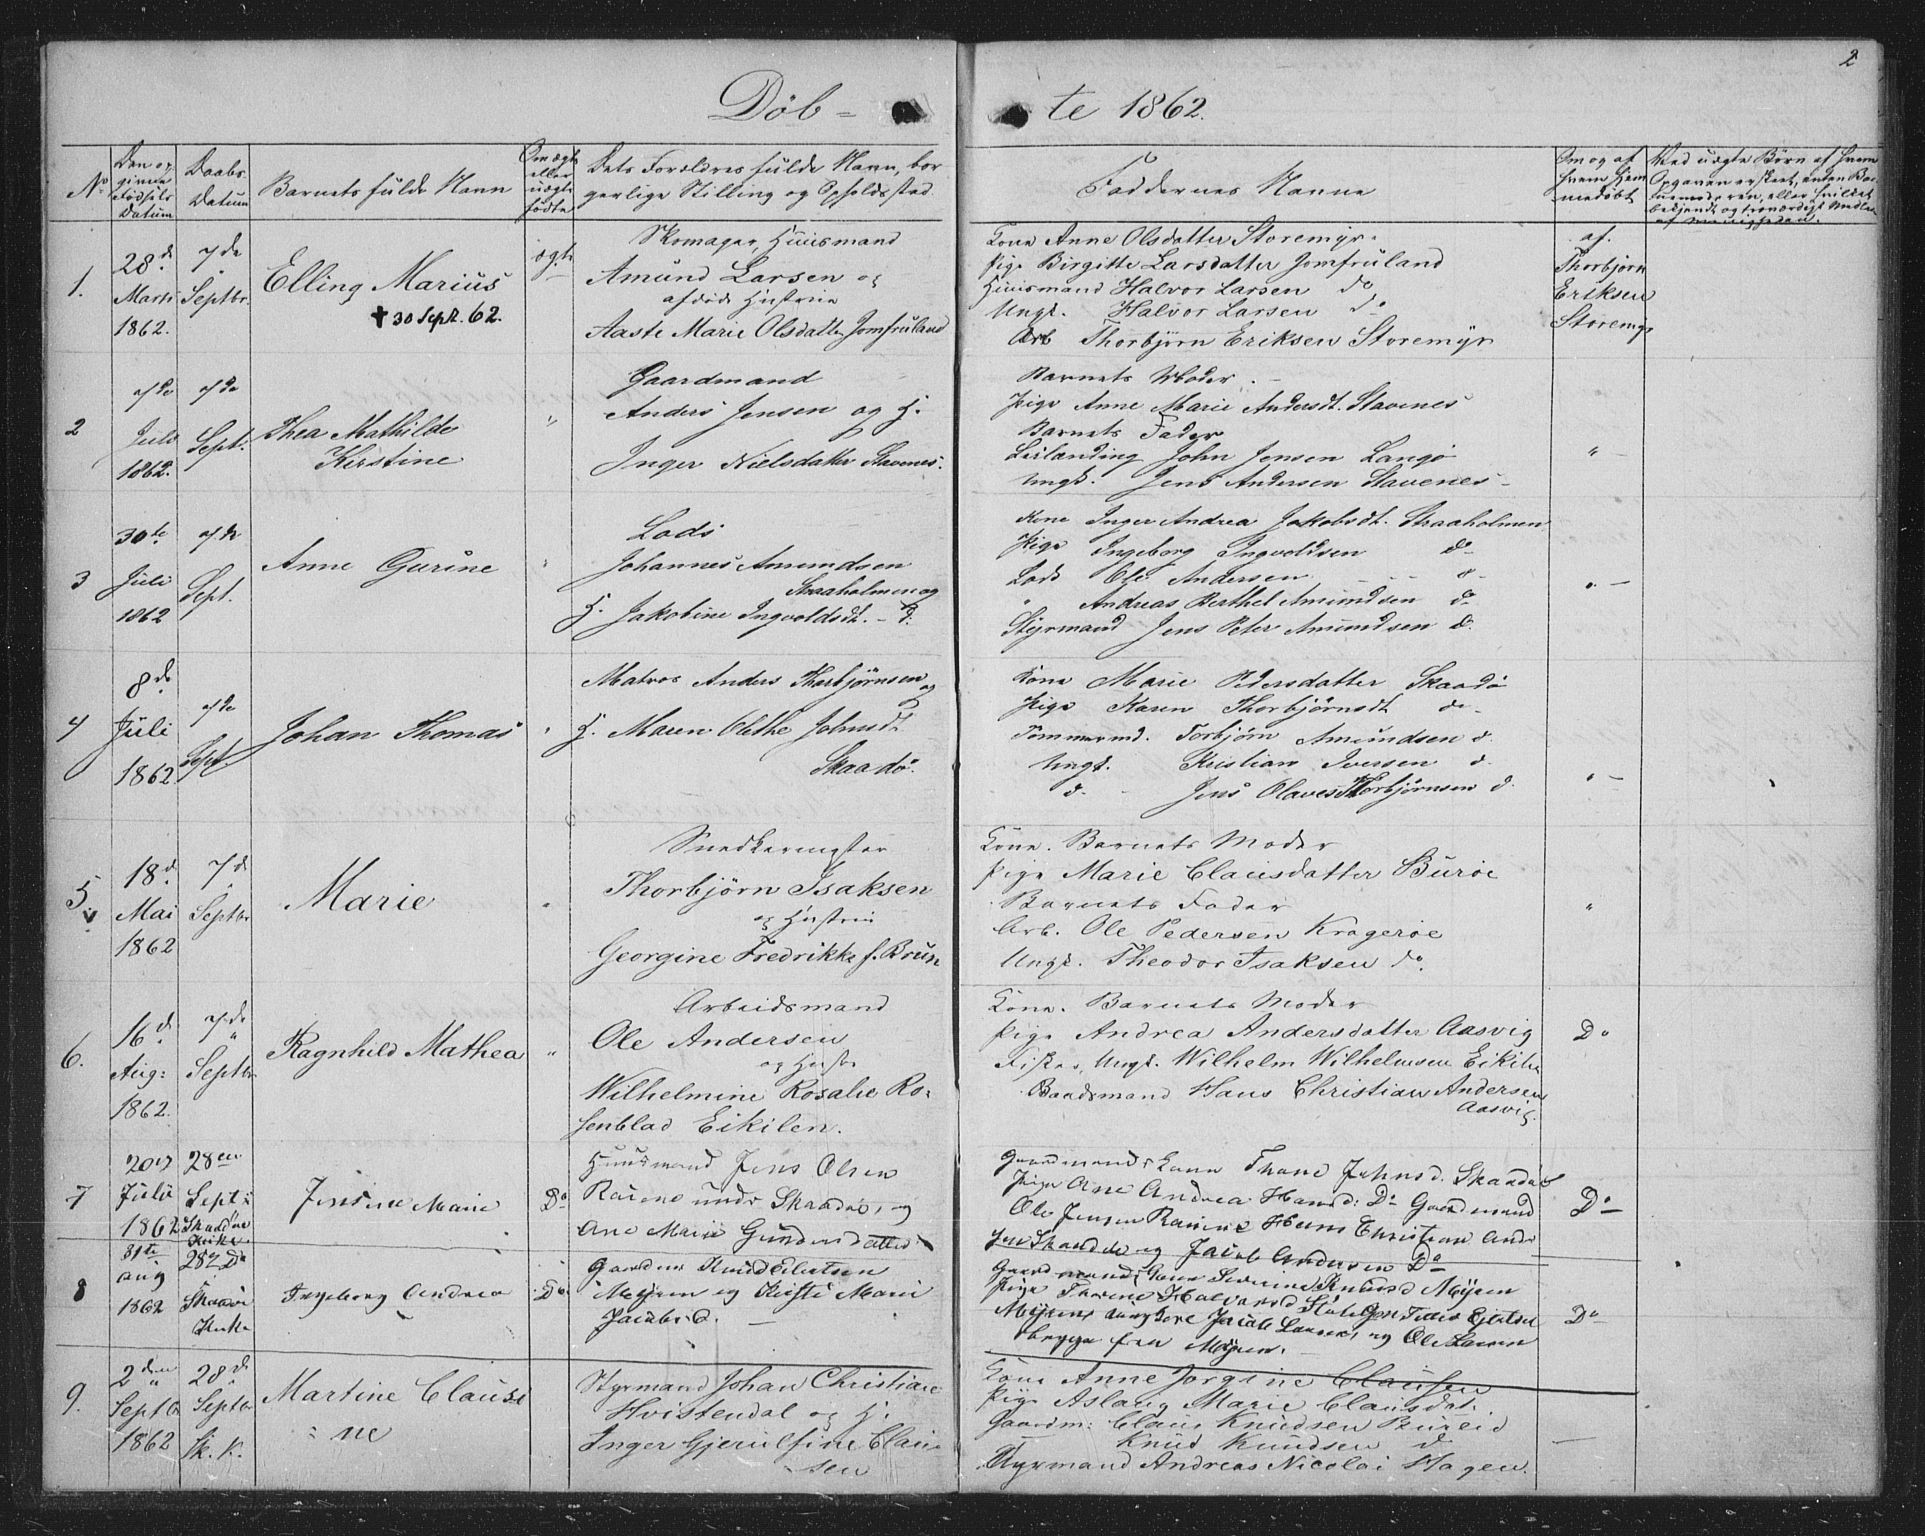 2
Döb- te 1862.
No
Den opgivne Fødsels Datum
Daabs Datum
Barnets fulde Navn
Om ægte eller uægte fødte
Dets Forældres fulde Navn, borgerlige Stilling og Opholdssted
Faddernes Navne
Om og af hvem hjemmedøbt
Ved uægte Børn af hvem
Opgaven er skeet, enten Barnemoderen, eller hvilket
bekjendt og troværdigt Medlem
af Menigheden.
1.
28de
Marts
1862.
7de
Septbr.
Elling Marius
✝ 30 Sept. 62.
ægte
Skomager, Huusmand
Amund Larsen og
afdøde Hustrue
Aaste Marie Olsdatter Jomfruland
Kone Anne Olsdatter Storemyr.
Pige Birgitte Larsdatter Jomfruland
Huusmand Halvor Larsen do
Ungk. Halvor Larsen do
Arb Thorbjørn Eriksen Storemyr
af.
Thorbjørn
Eriksen
Storemyr
2
Juli
1862.
7de
Sept.
Thea Mathilde
Kirstine
"
Gaardmand
Anders Jensen og H.
Inger Nielsdatter Stavenes.
Barnets Moder.
Pige Anne Marie Andersdt. Stavenes
Barnets Fader
Leilænding John Jensen Langø
Ungk. Jens Andersen Stavenes
"
3
30te
Juli
1862
7de
Sept.
Anne Gurine
"
Lods
Johannes Amundsen
Straaholmen og
H. Jakobine Ingvoldsdt. - d.
Kone Inger Andrea Jakobsdt. Straaholmen
Pige Ingeborg Ingvoldsen do
Lods Ole Andersen do
" Andreas Berthel Amundsen do
Styrmand Jens Peter Amundsen d.
"
4
8de
Juli
1862
7de
Sept.
Johan Thomas
"
Matros Anders Thorbjørnsen og
H. Maren Olethe Johnsdt
Skaadø.
Kone Marie Pedersdatter Skaadø
Pige Karen Thorbjørnsdt do
Tømmermd. Torbjørn Amundsen d.
Ungk. Kristian Iversen d.
d. Jens Olaves Thorbjørnsen d.
"
5.
18de
Mai
1862
7de
Septbr
Marie
"
Snedkermester
Thorbjørn Isaksen
og Hustrue
Georgine Fredrikke f. Brun
Kone. Barnets Moder
Pige Marie Clausdatter Buröe
Barnets Fader
Arb. Ole Pedersen Krageröe
Ungk. Theodor Isaksen do.
"
6.
16de
Aug:
1862.
7de
Septbr
Ragnhild Mathea
"
Arbeidsmand
Ole Andersen
og Hustr
Wilhelmine Rosalie Rosenblad Eikilen.
Kone. Barnets Moder
Pige Andrea Andersdatter Aasvig
Fisker, Ungk. Wilhelm Wilhelmsen Eikilen
Baadsmand Hans Christian Andersen
Aasvig.
Do
7
Julii
1862
28en
Sept:
Skaadøe
Kirke
Jensine Marie
Do
Huusmand Jens Olsen
Raiene under Skaadøe, og
Ane Marie Gundersdatter
Gaardmandskone Thone Johnsd. Skaadøe
Pige Ane Andrea Hansd: Do Gaardmand
Ole Jensen Raiene Hans Christian Andersen Skaadøe og Jacob Andersen Do
Do
8
31te
Aug
1862
28en Do
Skaadøe
Kirke
Ingeborg Andrea
Do
Gaardm Knud Olutsen
Møyren og Kirsti Marie
Jacobsd.
Gaardmands Kone Severine Knudsd Møyren
Pige Thorine Halvorsd
Møyren, Jacob Larsen, og Ole Larsen
fra Møyren.
Do
9.
2den
Septbr
1862
28de
Septbr
Sk. K.
Martine Clausine
Styrmand Johan Christian
Hvistendal og H.
Inger Gjerulfine Clausen
Kone Anne Jorgine Clausen
Pige Aslaug Marie Clausdat.
Gaardm: Claus Knudsen Bureid
Knud Knudsen d
Styrmand Andreas Nicolai Hagen.